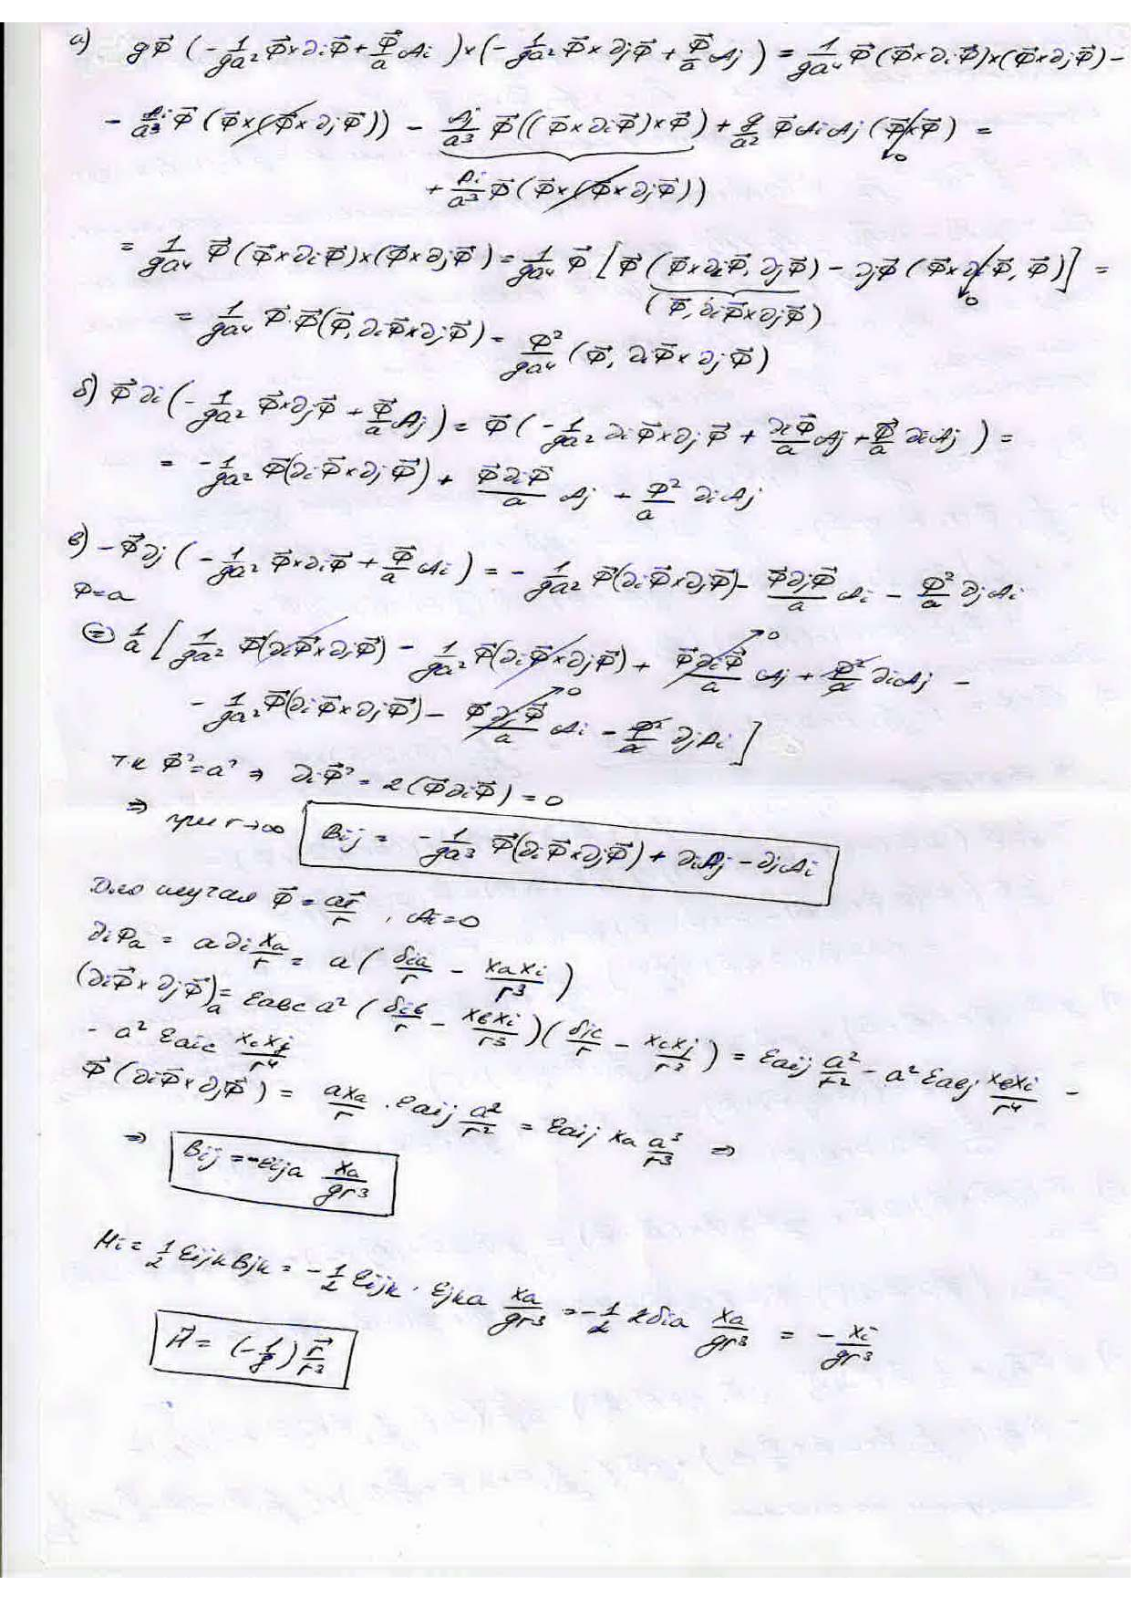 а) gφ⃗ (-1/ga² φ⃗×∂iφ⃗ + φ⃗/a Ai)×(-1/ga² φ⃗×∂jφ⃗ + φ⃗/a Aj) = 1/ga⁴ φ⃗(φ⃗×∂iφ⃗)×(φ⃗×∂jφ⃗) -
- Ai/a³ φ⃗(φ⃗×(φ⃗×∂jφ⃗)) - Aj/a³ φ⃗((φ⃗×∂iφ⃗)×φ⃗) + g/a² φ⃗AiAj(φ⃗×φ⃗) =
→0
+ Ai/a³ φ⃗(φ⃗×(φ⃗×∂jφ⃗))
= 1/ga⁴ φ⃗(φ⃗×∂iφ⃗)×(φ⃗×∂jφ⃗) = 1/ga⁴ φ⃗[φ⃗(φ⃗×∂iφ⃗, ∂jφ⃗) - ∂jφ⃗(φ⃗×∂iφ⃗, φ⃗)] =
(φ⃗, ∂iφ⃗×∂jφ⃗) →0
= 1/ga⁴ φ⃗·φ⃗(φ⃗, ∂iφ⃗×∂jφ⃗) = φ²/ga⁴ (φ⃗, ∂iφ⃗×∂jφ⃗)
б) φ⃗∂i(-1/ga² φ⃗×∂jφ⃗ + φ⃗/a Aj) = φ⃗(-1/ga² ∂iφ⃗×∂jφ⃗ + ∂iφ⃗/a Aj + φ⃗/a ∂iAj) =
= -1/ga² φ⃗(∂iφ⃗×∂jφ⃗) + φ⃗∂iφ⃗/a Aj + φ²/a ∂iAj
в) -φ⃗∂j(-1/ga² φ⃗×∂iφ⃗ + φ⃗/a Ai) = -1/ga² φ⃗(∂iφ⃗×∂jφ⃗) - φ⃗∂jφ⃗/a Ai - φ²/a ∂jAi
φ=a
⊜ 1/a [1/ga² φ⃗(∂iφ⃗×∂jφ⃗) - 1/ga² φ⃗(∂iφ⃗×∂jφ⃗) + φ⃗∂iφ⃗/a Aj + φ²/a ∂iAj -
→0
- 1/ga² φ⃗(∂iφ⃗×∂jφ⃗) - φ⃗∂jφ⃗/a Ai - φ²/a ∂jAi]
→0
т.к φ⃗²=a² ⇒ ∂iφ⃗² = 2(φ⃗∂iφ⃗) = 0
⇒ при r→∞ Bij = -1/ga³ φ⃗(∂iφ⃗×∂jφ⃗) + ∂iAj - ∂jAi
Для случая φ⃗ = ar⃗/r, Ai=0
∂iφa = a∂i xa/r = a(δia/r - xaxi/r³)
(∂iφ⃗×∂jφ⃗)a = εabc a²(δib/r - xbxi/r³)(δjc/r - xcxj/r³) = εaij a²/r² - a²εabj xbxi/r⁴ -
- a²εaic xcxj/r⁴
φ⃗(∂iφ⃗×∂jφ⃗) = axa/r · εaij a²/r² = εaij xa a³/r³ ⇒
⇒ Bij = -εija xa/gr³
Hi = 1/2 εijkBjk = -1/2 εijk · εjka xa/gr³ = -1/2 2δia xa/gr³ = - xi/gr³
H⃗ = (-1/g) r⃗/r³